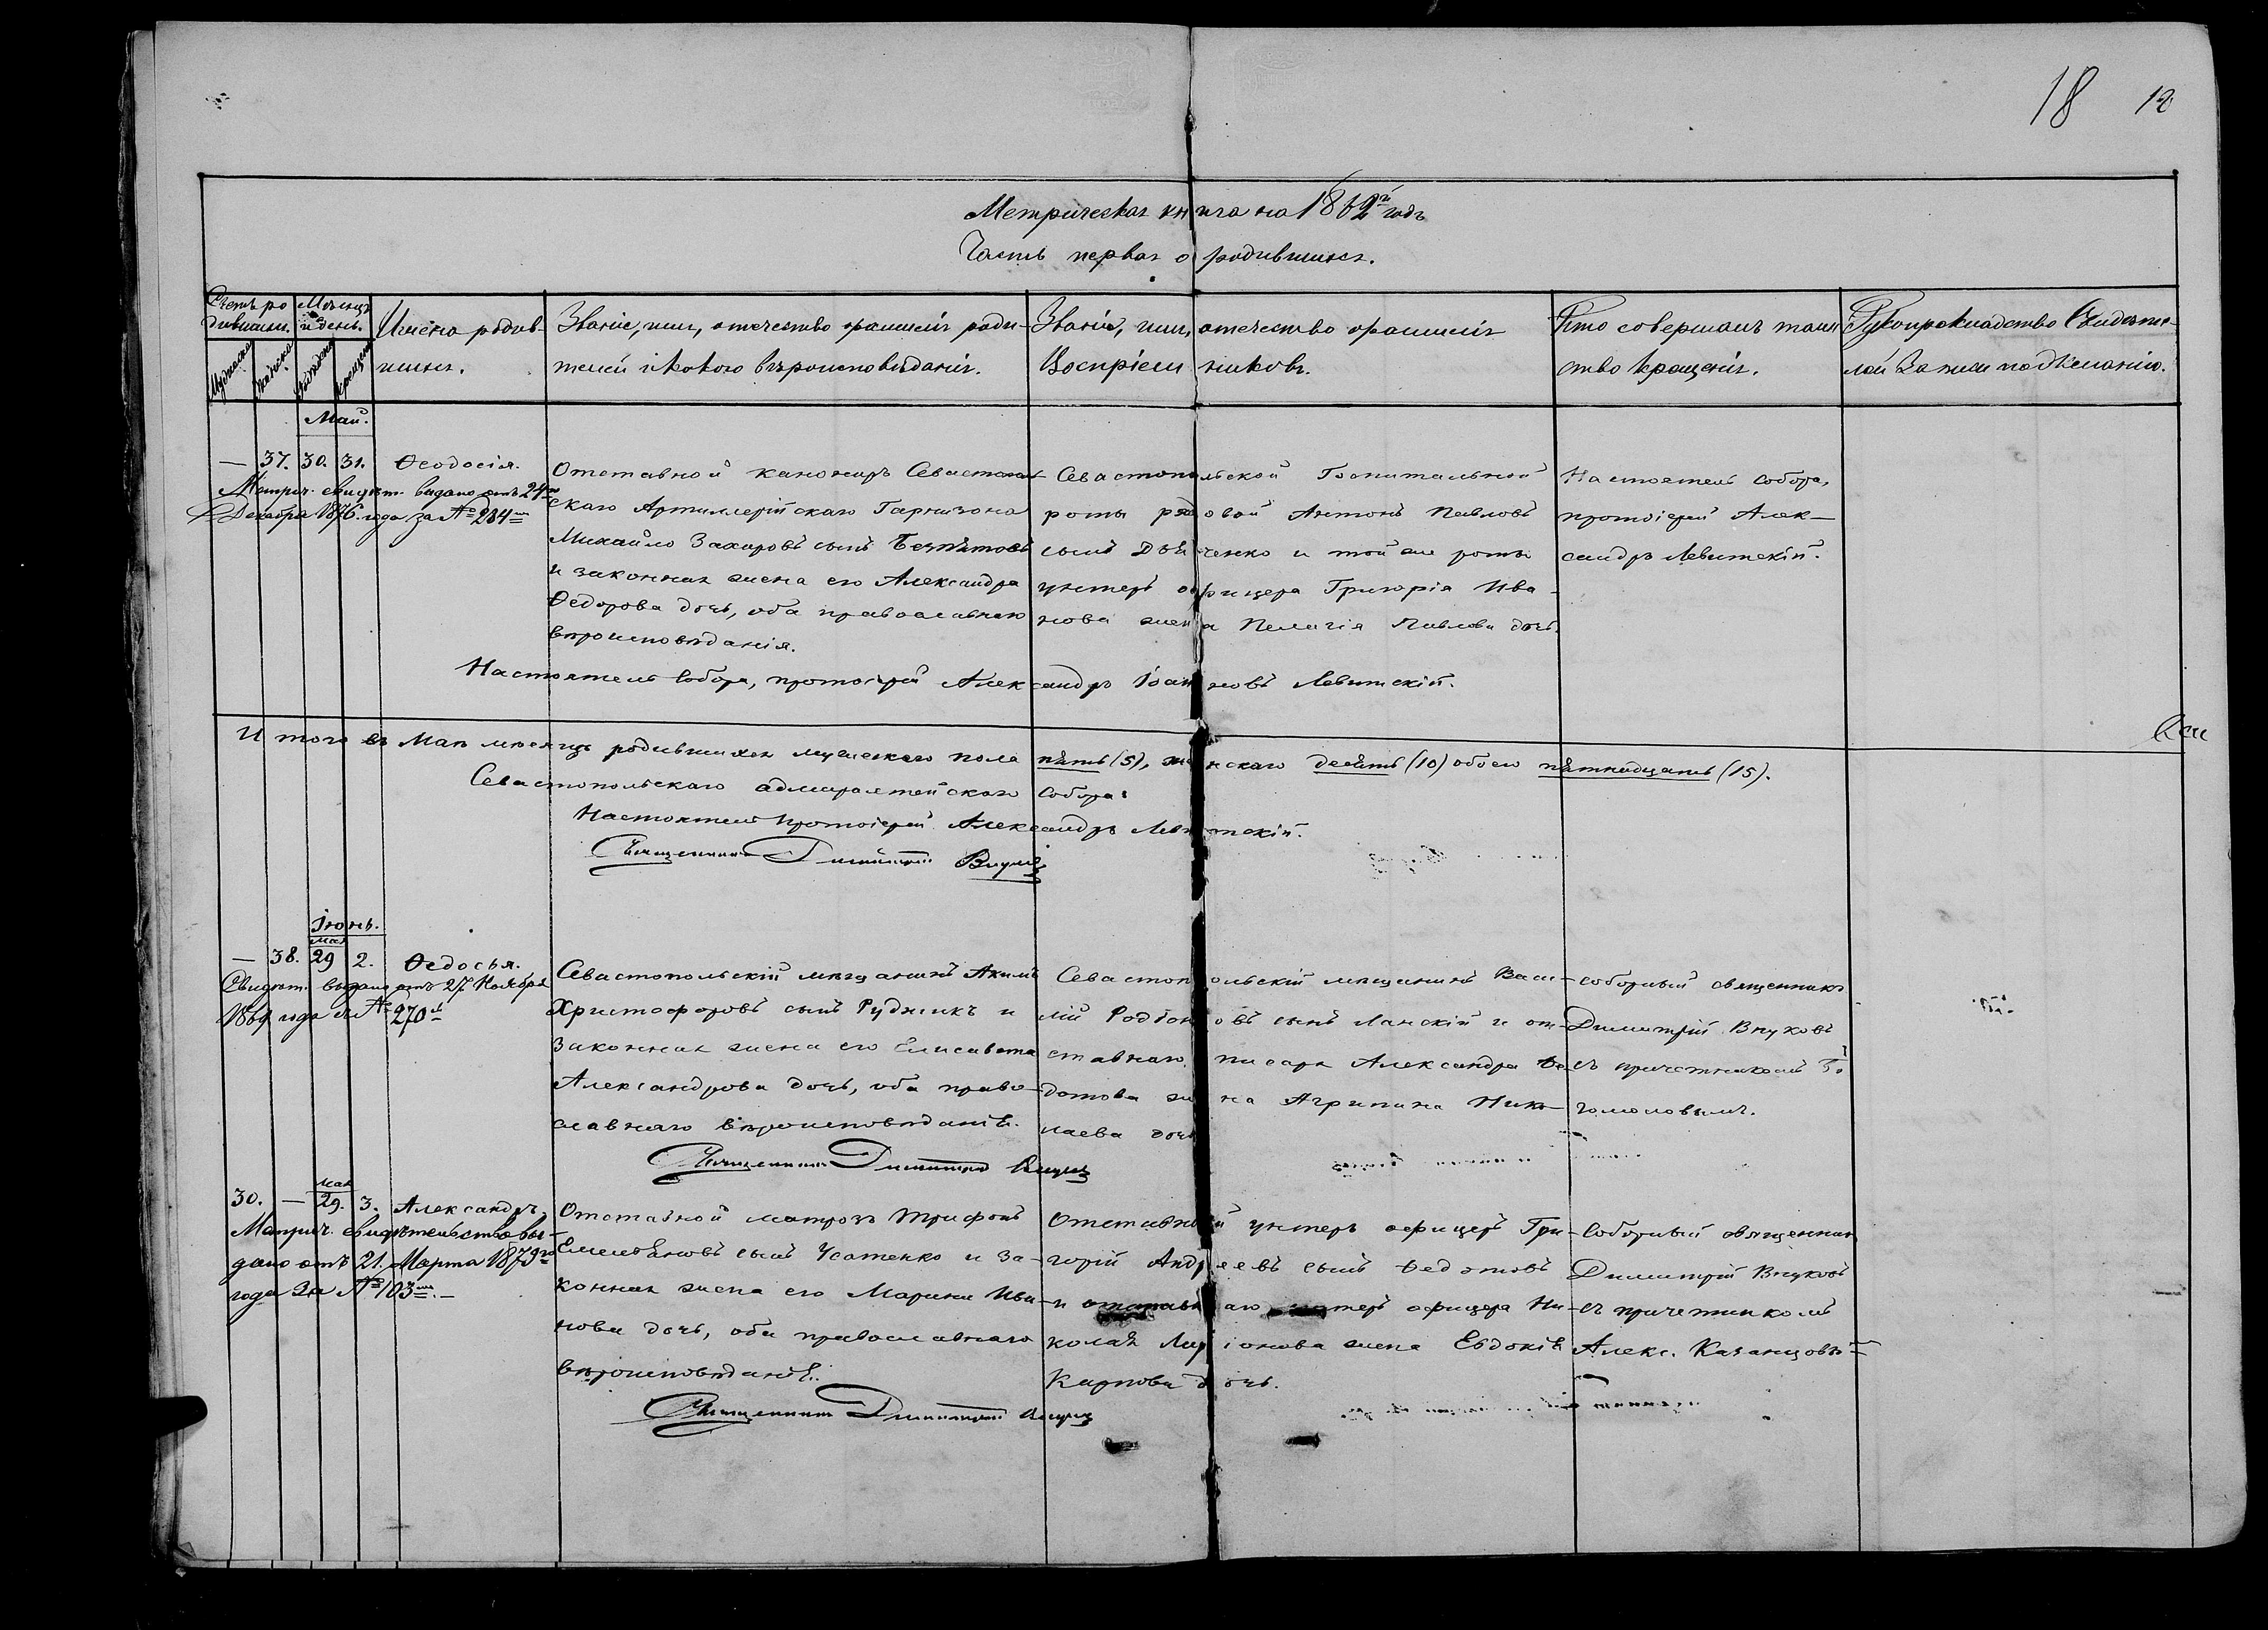 18 12
Метрическая книга на 1862й годъ
Часть первая о родившихся.
Счетъ ро
дившихся.
Мужеска
Женска
Мѣсяцъ
и день.
рожденія
крещенія
Имена родив-
шихся.
Званіе, имя, отчество фамилія роди-
телей и какого вѣроисповѣданія.
Званіе, имя, отчество фамилія
Воспріемниковъ.
Кто совершалъ таин
ство крещенія.
Рукоприкладство Свидѣте-
лей Записи по желанію.
Май.
— 37. 30. 31. Ѳеодосія.
Метрич. свидѣт. выдано отъ 24го
Декабря 1876 года за № 284м
Отставной канониръ Севастополь
скаго Артиллерійскаго Гарнизона
Михайло Захаровъ сынъ
и законная жена его Александра
Ѳедорова дочь, оба православнаго
вѣроисповѣданія.
Севастопольской Госпитальной
роты рядовой Антонъ Павловъ
сынъ и той же роты
унтеръ офицера Григорія Ива-
нова жена Пелагія Павлова дочь.
Настоятель собора,
протоіерей Алек-
сандръ Левитскій.
Настоятель Собора, протоіерей Александръ Іоанновъ Левитскій.
Итого въ Маѣ мѣсяцѣ родившихся мужескаго пола пять (5), женскаго десять (10) обоего пятнадцать (15).
Севастопольскаго адмиралтейскаго Собора:
Настоятель протоіерей Александръ Левитскій.
Священникъ Димитрій Внуковъ
Іюнь.
мая
— 38. 29 2. Ѳедосья.
Свидѣт. выдано отъ 27 Ноября
1869 года за № 270й
Севастопольскій мѣщанинъ Акимъ
Христофоровъ сынъ Рудникъ и
законная жена его Елисавета
Александрова дочь, оба право-
славнаго вѣроисповѣданія.
Севастопольскій мѣщанинъ Васи-
лій Родіоновъ сынъ Ланскій и от-
ставнаго писаря Александра Ѳе-
дотова жена Агрипина Нико-
лаева дочь
соборный священникъ
Димитрій Внуковъ
съ причетникомъ Бо
гомоловымъ.
Священникъ Димитрій Внуковъ
мая
30. — 29. 3. Александръ.
Метрич. свидѣтельство вы-
дано отъ 21. Марта 1879го
года За № 103м. —
Отставной матрозъ Трифонъ
Емельяновъ сынъ Усатенко и за-
конная жена его Марина Ива-
нова дочь, оба православнаго
вѣроисповѣданія.
Отставной унтеръ офицеръ Гри-
горій Андреевъ сынъ Федотовъ
и отставнаго унтеръ офицера Ни-
колая Ларіонова жена Евдокія
Карпова дочь.
Соборный священникъ
Димитрій Внуковъ
съ причетникомъ
Алекс. Казанцовъ
Священникъ Димитрій Внуковъ